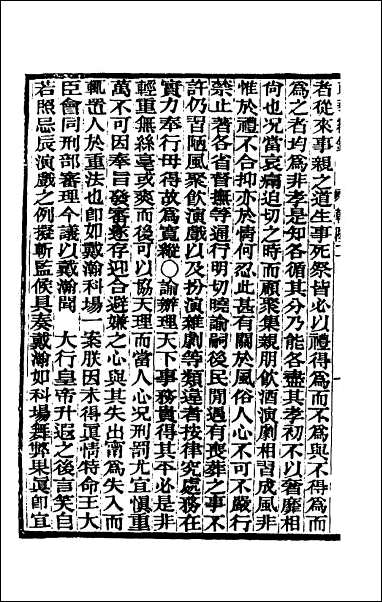 者從來事親之道生事死祭皆必以禮得爲而不爲與不得爲而
爲之者均爲非孝是知各循其分乃能各盡其孝初不以奢靡相
尙也况當哀痛迫切之時而顧聚集親朋飮酒演劇相習成風非
惟於禮不合抑亦於情何忍此甚有關於風俗人心不可不嚴行
禁止著各省督撫等通行明切曉諭嗣後民間遇有喪葬之事不
許仍習陋風聚飮演戲以及扮演雜劇等類違者按律究處務在
實力奉行毋得故爲寬縱○諭辦理天下事務貴得其平必是非
輕重無絲毫或爽而後可以協天理而當人心况刑罰尤宜愼重
萬不可因奉旨發審遂存迎合避嫌之心與其失出甯爲失入而
輒置人於重法也卽如戴瀚科場一案朕因未得眞情特命王大
臣會同刑部審理今議以戴瀚問 大行皇帝升遐之後言笑自
若照忌辰演戲之例擬斬監候具奏戴瀚如科場舞弊果眞卽宜